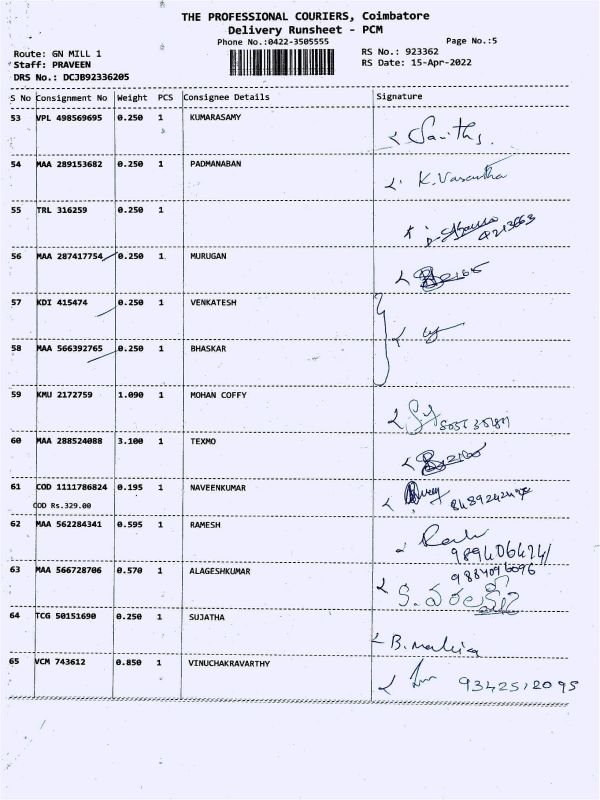 THE PROFESSIONAL COURIERS, Coimbatore
Delivery Runsheet - PCM
Phone No.:0422-3505555
Page No.:5
Route: GN MILL 1
RS No.: 923362
Staff: PRAVEEN
RS Date: 15-Apr-2022
DRS No.: DCJB92336205
S No Consignment No Weight PCS Consignee Details Signature
53 VPL 498569695 0.250 1 KUMARASAMY
54 MAA 289153682 0.250 1 PADMANABAN K. Vasantha
55 TRL 316259 0.250 1
56 MAA 287417754 0.250 1 MURUGAN
57 KDI 415474 0.250 1 VENKATESH
58 MAA 566392765 0.250 1 BHASKAR
59 KMU 2172759 1.090 1 MOHAN COFFY
60 MAA 288524088 3.100 1 TEXMO
61 COD 1111786824 0.195 1 NAVEENKUMAR
COD Rs.329.00
62 MAA 562284341 0.595 1 RAMESH
63 MAA 566728706 0.570 1 ALAGESHKUMAR
64 TCG 50151690 0.250 1 SUJATHA
65 VCM 743612 0.850 1 VINUCHAKRAVARTHY